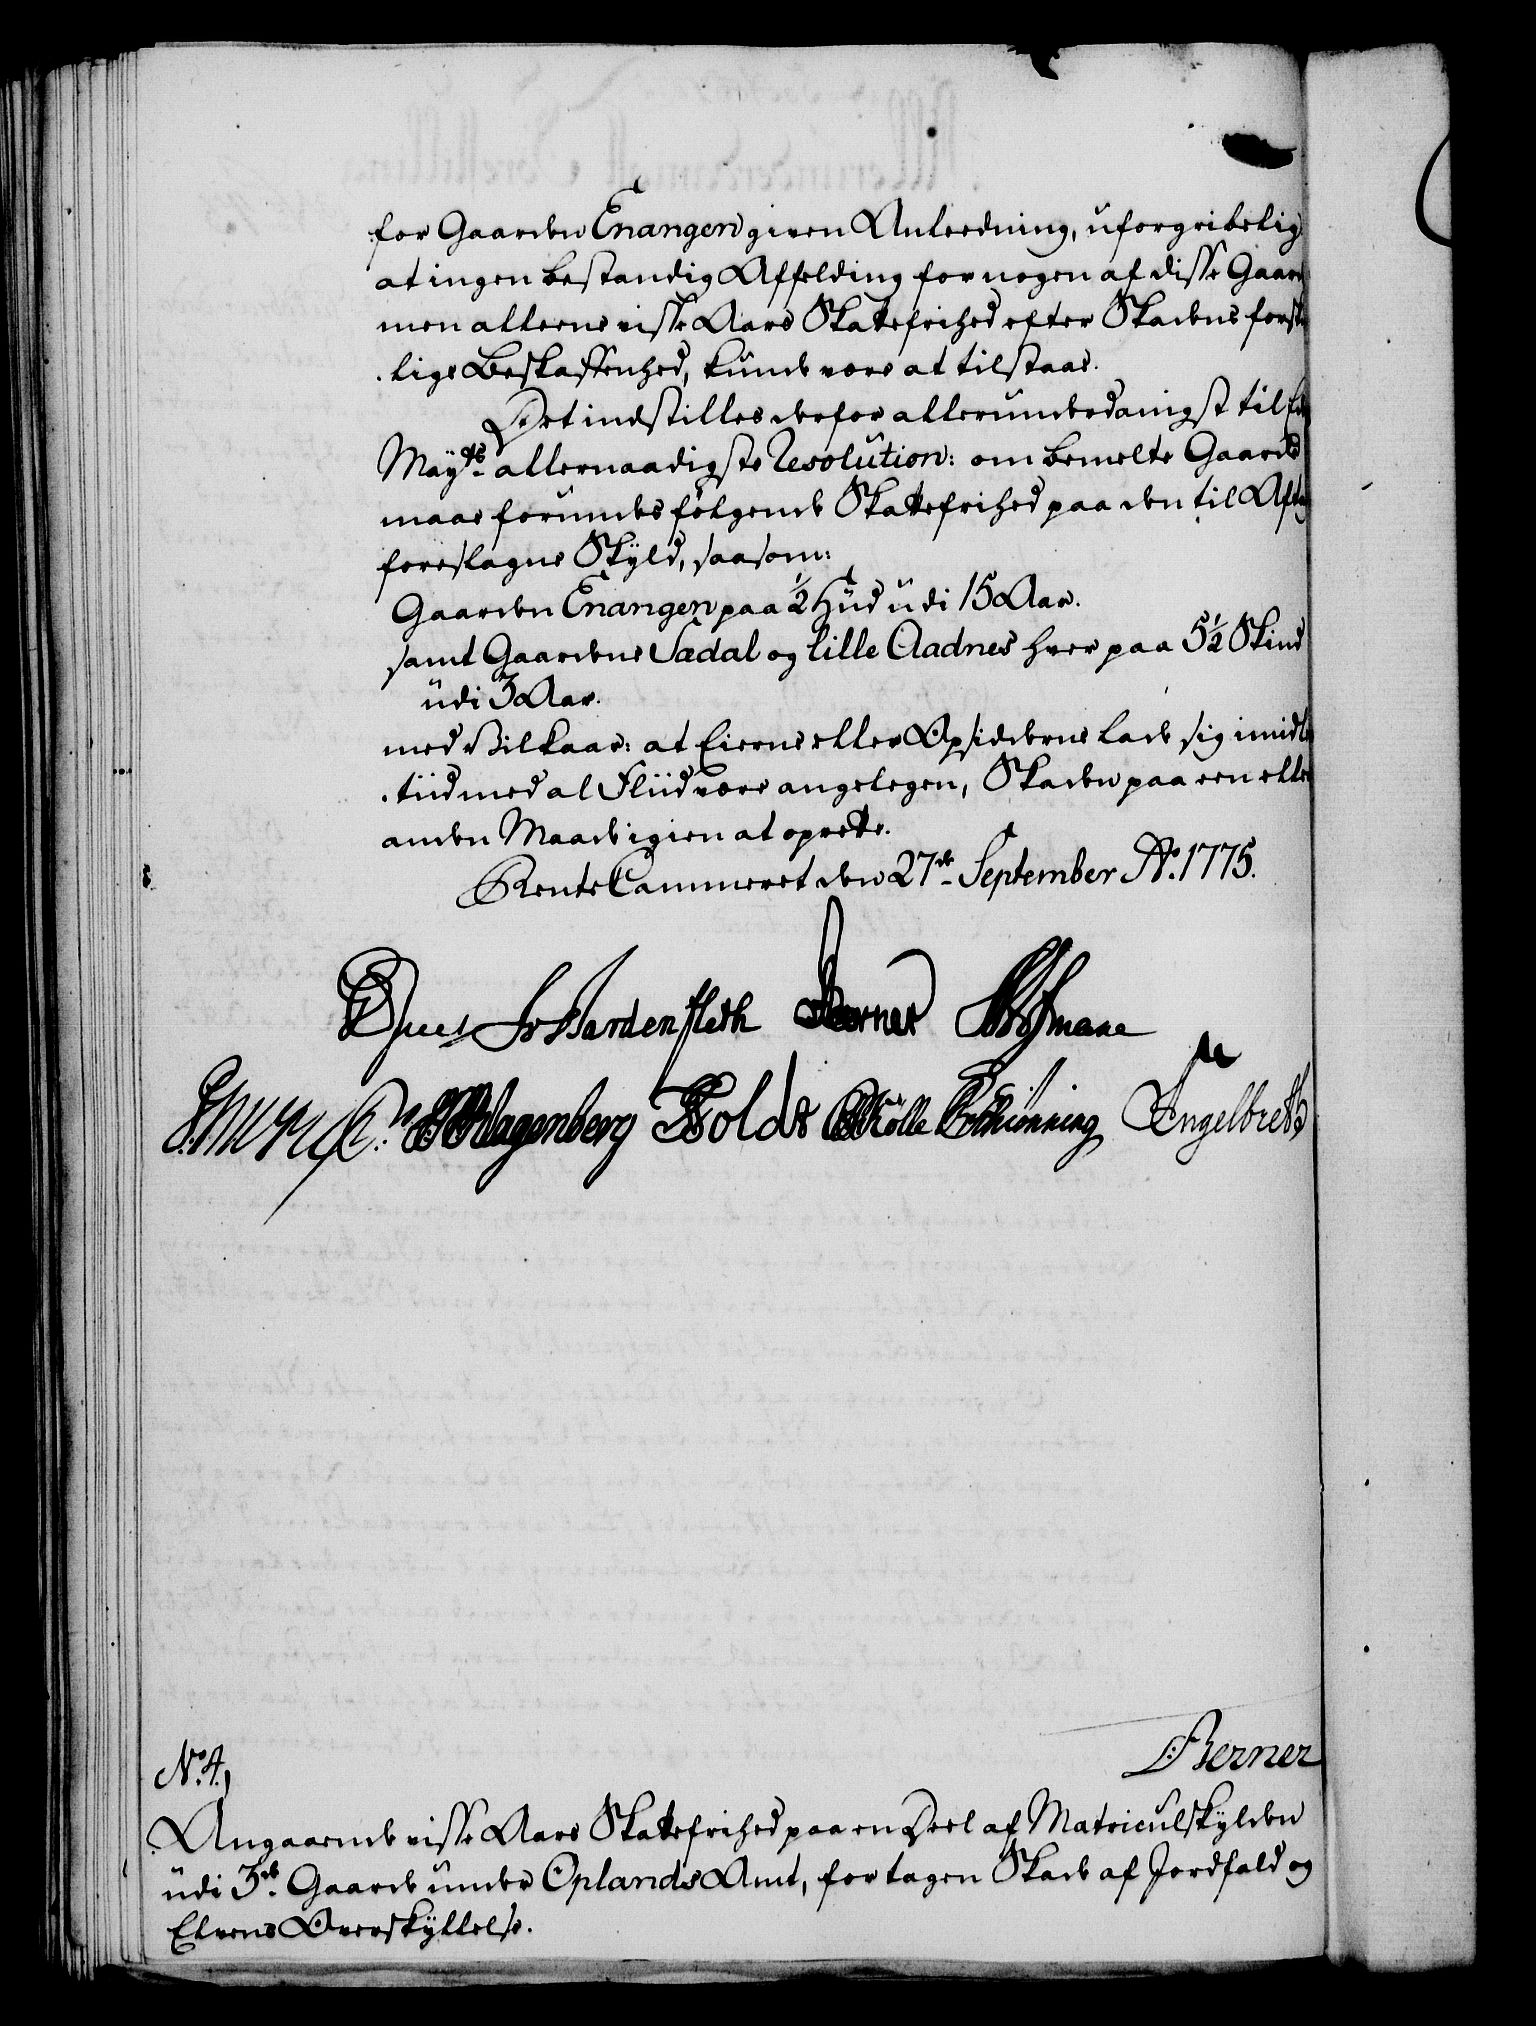 for Gaarden Enangen given Anleedning, uforgribelig
at ingen bestandig Affelding for nogen af disse Gaard
men alleene visse Aars Skattefrihed efter Skadens forskiæ
lige Beskaffenhed, kunde være at tilstaae.
Det indstilles derfor allerunderdanigst til
Mayts. allernaadigste Resolution: om bemelte Gaarde
maae forundes følgende Skattefrihed paa den til Aftag
foreslagne Skyld, saasom:
Gaarden Enangen paa ½ Hud udi 15 Aar.
samt Gaardene Sædal og lille Aadnes hver paa 5½ Skind
udi 3 Aar.
med Vilkaar: at Eierne eller Opsidderne lade sig imidler
tiid med al Fliid være angelegen, Skaden paa een eller
anden Maade igien at oprette.
RenteCammeret den 27de September Ao. 1775.
Wardenfleth Berner
Klagenberg Holdt Rølle Schiønning Engelbreth
Berner
No. 4.
Angaaende visse Aars Skattefrihed paa en Deel af Matriculskylden
udi 3de. Gaarde under Oplands Amt, for tagen Skade af Jordfald og
Elvens Overskyllelse.